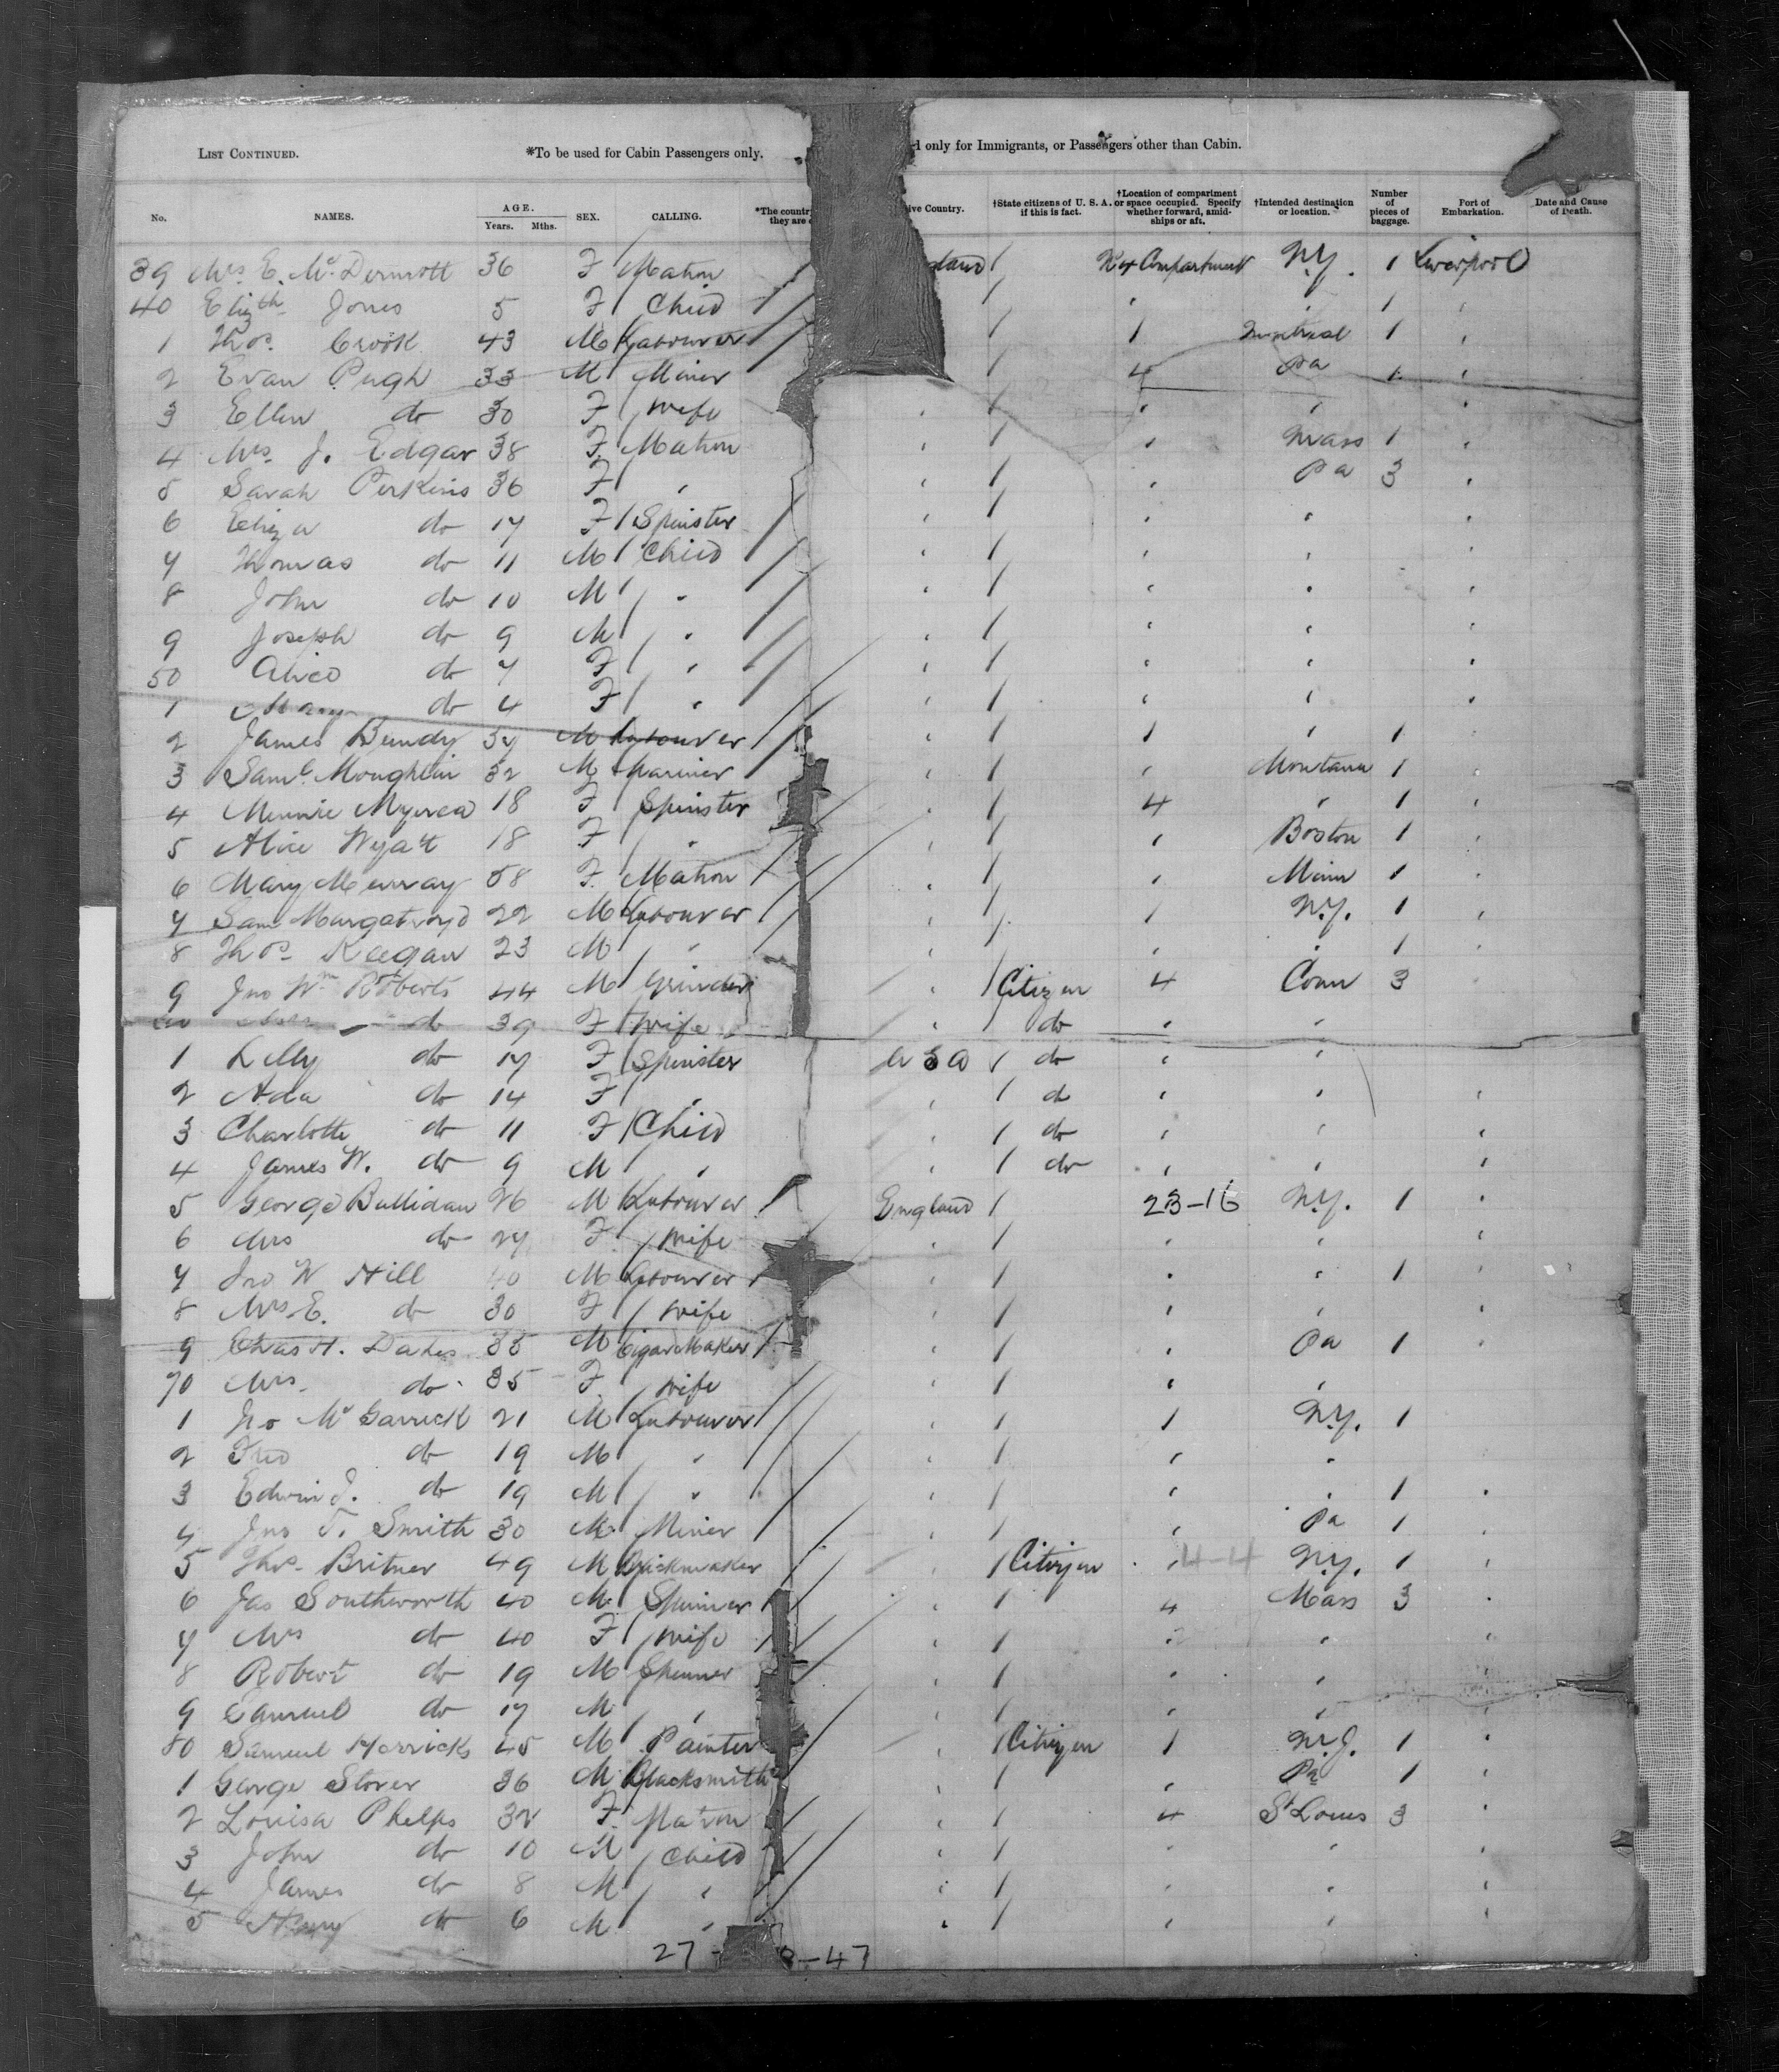 LIST CONTINUED. *To be used for Cabin Passengers only. only for Immigrants, or Passengers other than Cabin.
No. NAMES. AGE. Years. Mths. SEX. CALLING. *The country they are ive Country. †State citizens of U. S. A. if this is fact. †Location of compartment or space occupied. Specify whether forward, amid-ships or aft. †Intended destination or location. Number of pieces of baggage. Port of Embarkation. Date and Cause of Death.
39 Mrs. E. McDermott 36 F Matron Compartment N.Y. 1 Liverpool
40 Elizth Jones 5 F Child 1
1 Thos. Crook 43 M Labourer 1 Montreal 1
2 Evan Pugh 33 M Miner 4 Pa 1
3 Ellen do 30 F wife
4 Mrs. J. Edgar 38 F. Matron Mass 1
5 Sarah Perkins 36 F " Pa 3
6 Eliza do 17 F Spinster
7 Thomas do 11 M Child
8 John do 10 M "
9 Joseph do 9 M "
50 Alice do 7 F "
1 Mary do 4 F "
2 James Bundy 37 M Labourer 1 1
3 Saml. Moughlin 32 M Mariner Montana 1
4 Minnie 18 F Spinster 4 1
5 Alice Wyatt 18 F " Boston 1
6 Mary Murray 58 F. Matron Minn 1
7 Sam Murgatroyd 22 M Labourer 1 N.Y. 1
8 Thos. Keegan 23 M " 1
9 Jno Wm Roberts 44 M Grinder Citizen 4 Conn 3
do 39 F wife do
1 Lilly do 17 F Spinster U S A do
2 Ada do 14 F " do
3 Charlotte do 11 F Child do
4 James W. do 9 M " do
5 George 26 M Labourer England 23-16 N.Y. 1
6 Mrs do 27 F wife
7 Jno W Hill 40 M Labourer 1
8 Mrs E. do 30 F wife
9 Chas H. 35 M Cigar Maker Pa 1
70 Mrs. do 35 F. wife
1 Jno McGarrick 21 M Labourer 1 N.Y. 1
2 Fred do 19 M "
3 Edwin J. do 19 M " 1
4 Jno T. Smith 30 M Miner Pa 1
5 Thos. Britner 49 M Brickmaker Citizen 4-4 N.Y. 1
6 Jas Southworth 40 M Spinner 4 Mass 3
7 Mrs do 40 F wife
8 Robert do 19 M Spinner
9 Samuel do 17 M "
80 Samuel 45 M Painter Citizen 1 N.J. 1
1 George Storer 36 M Blacksmith Pa 1
2 Louisa Phelps 32 F. Matron 4 St Louis 3
3 John do 10 M Child
4 James do 8 M "
5 Henry do 6 M "
27 -47